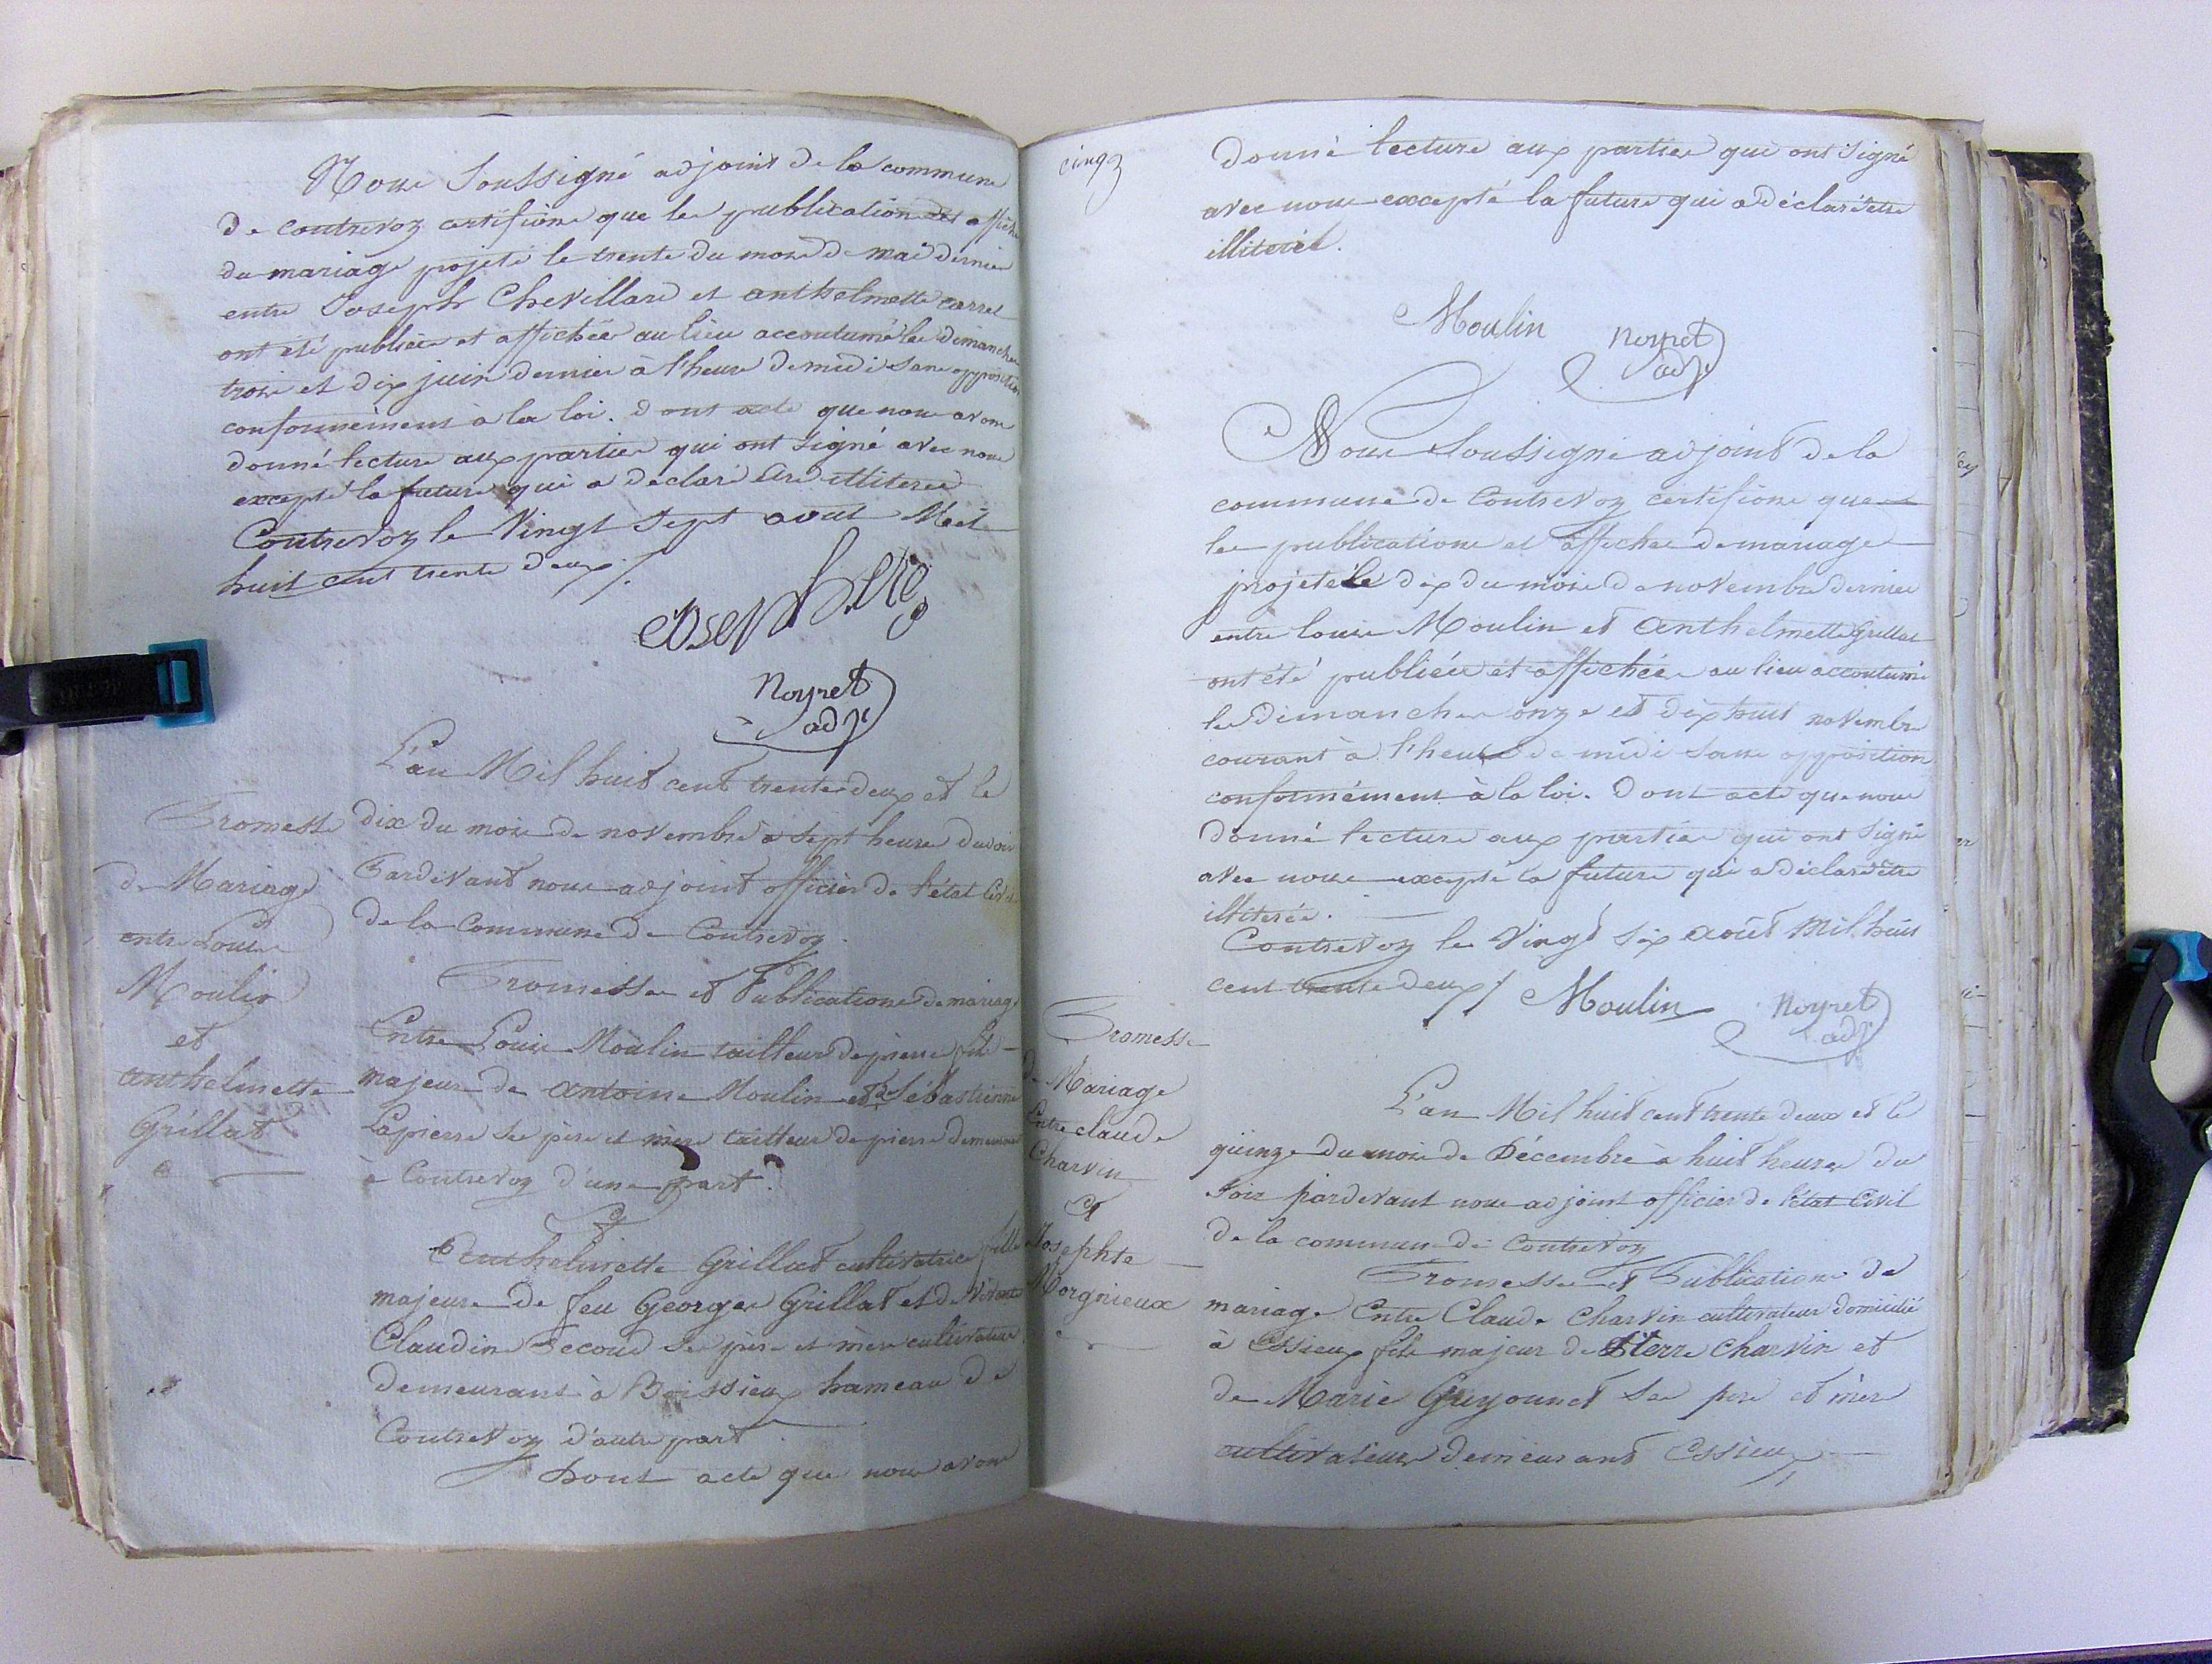 Nous Soussigné adjoint de la commune
de contrevoz certifions que les publications et affiches
du mariage projeté le trente du mois de mai dernier
entre Joseph Chevillard et anthelmette carrel
ont été publiées et affichées au lieu accoutumé les dimanches
trois et dix juin dernier à l'heure de midi sans opposition
conformément à la loi. dont acte que nous avons
donné lecture aux parties qui ont signé avec nous
excepté la future qui a déclaré être illiterée
Contrevoz le Vingt Sept aout Mil
huit cent trente deux /.
Noyret
adjt
L'an Mil huit cent trente deux et le
dix du mois de novembre à sept heures du soir
Pardevant nous adjoint officier de l'état Civil
de la Commune de Contrevoz
Promesses et Publications de mariage
Entre Louis Moulin tailleur de pierre fils
majeur de antoine Moulin et de Sébastienne
Lapierre ses père et mère tailleur de pierre demeurant
à Contrevoz d'une part.
Et
Anthelmette Grillat cultivatrice fille
majeure de feu George Grillat et de vivante
Claudine Second ses père et mère cultivateurs
demeurant à Boissieux hameau de
Contrevoz d'autre part.
Dont acte que nous avons
Promesse
de Mariage
entre Louis
Moulin
et
anthelmette
Grillat
cinq
donné lecture aux parties qui ont signé
avec nous excepté la future qui a déclaré être
illiterée.
Moulin
Noyret
adjt
Nous Soussigné adjoint de la
commune de Contrevoz certifions que
les publications et affiches de mariage
projeté le dix du mois de novembre dernier
entre louis Moulin et Anthelmette Grillat
ont été publiées et affichées au lieu accoutumé
les dimanches onze et dix huit novembre
courant à l'heure de midi sans opposition
conformément à la loi. Dont acte que nous
donné lecture aux parties qui ont signé
avec nous excepté la future qui a déclaré être
illiterée.
Contrevoz le Vingt six août Mil huit
cent trente deux / Moulin
Noyret
adjt
Promesse
de Mariage
Entre claude
Charvin
et
Josephte
Morgnieux
L'an Mil huit cent trente deux et le
quinze du mois de Décembre à huit heures du
soir pardevant nous adjoint officier de l'état Civil
de la commune de Contrevoz
Promesses et Publications de
mariage Entre Claude Charvin cultivateur domicilié
à Essieux fils majeur de Pierre Charvin et
de Marie Guyonnet ses père et mère
cultivateurs demeurant Essieux